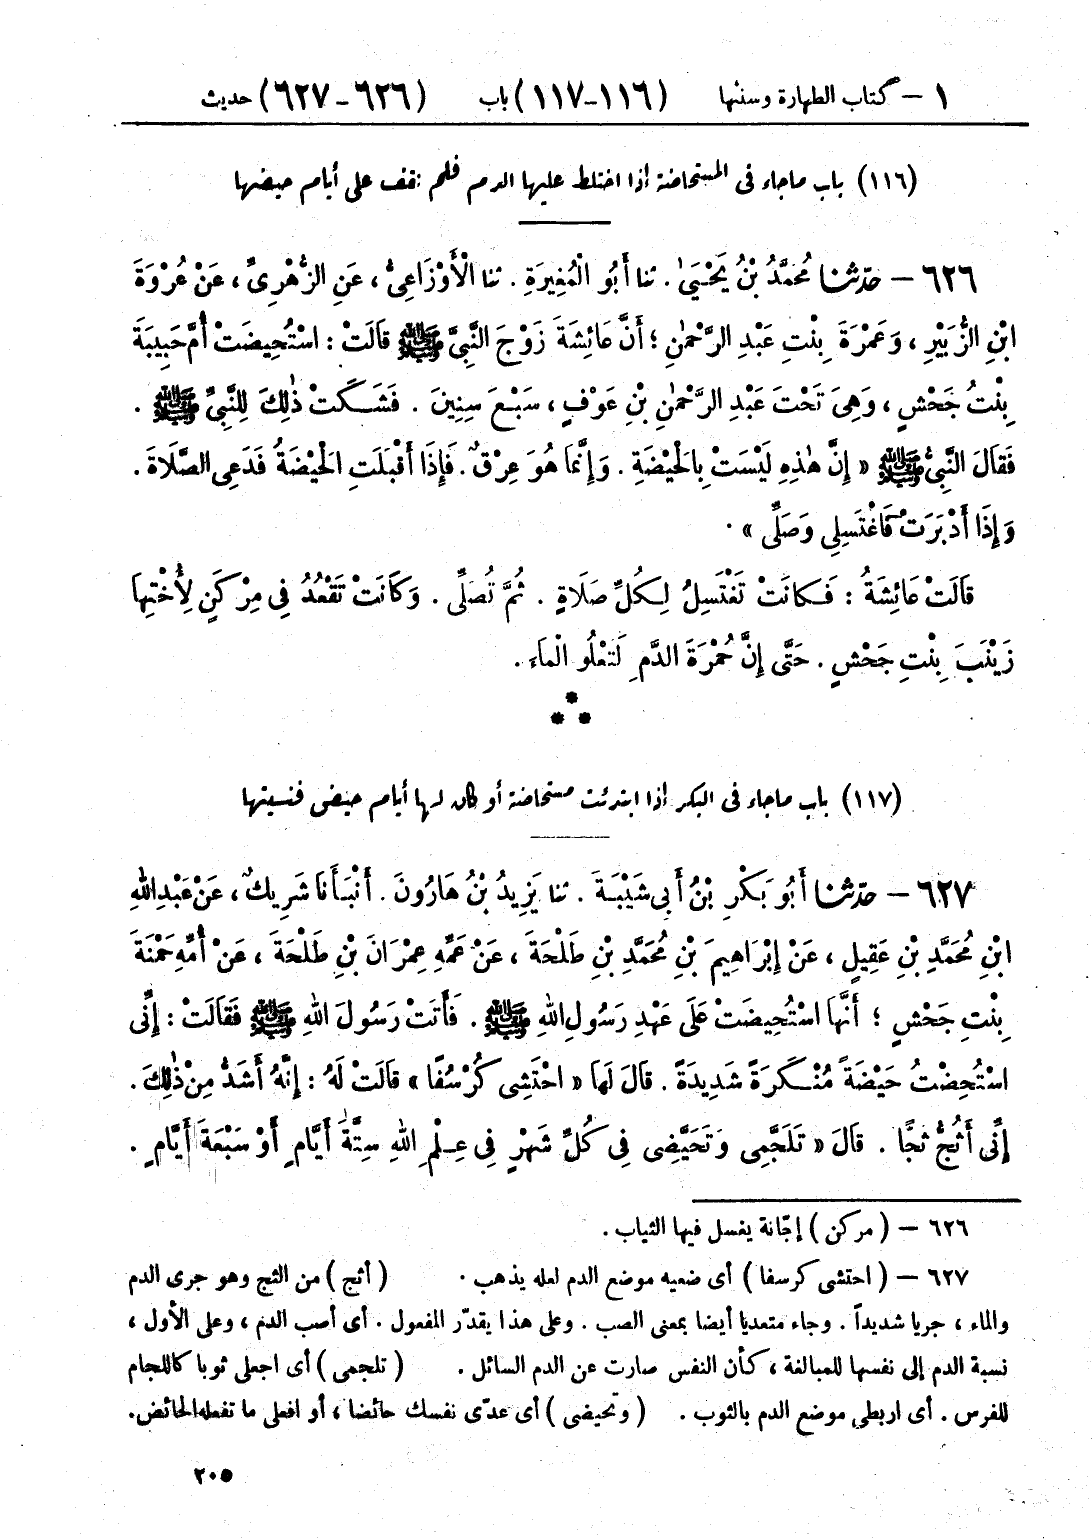 ١ – كتاب الطهارة وسننها (١١٦-١١٧) باب (٦٢٦-٦٢٧) حديث
(١١٦) باب ماجاء فى المستحاضة إذا اختلط عليها الدم فلم تقف على أيام حيضها
٦٢٦ – حدّثنا مُحَمَّدُ بْنُ يَحْيَىٰ . ثنا أَبُو الْمُغِيرَةِ . ثنا الْأَوْزَاعِىُّ ، عَنِ الزُّهْرِىِّ ، عَنْ عُرْوَةَ
ابْنِ الزُّبَيْرِ ، وَعَمْرَةَ بِنْتِ عَبْدِ الرَّحْمٰنِ ؛ أَنَّ عَائِشَةَ زَوْجَ النَّبِىِّ ﷺ قَالَتْ : اسْتُحِيضَتْ أُمُّ حَبِيبَةَ
بِنْتُ جَحْشٍ ، وَهِىَ تَحْتَ عَبْدِ الرَّحْمٰنِ بْنِ عَوْفٍ ، سَبْعَ سِنِينَ . فَشَكَتْ ذٰلِكَ لِلنَّبِىِّ ﷺ .
فَقَالَ النَّبِىُّ ﷺ « إِنَّ هٰذِهِ لَيْسَتْ بِالْحَيْضَةِ . وَإِنَّمَا هُوَ عِرْقٌ . فَإِذَا أَقْبَلَتِ الْحَيْضَةُ فَدَعِى الصَّلَاةَ .
وَإِذَا أَدْبَرَتْ فَاغْتَسِلِى وَصَلِّى » .
قَالَتْ عَائِشَةُ : فَكَانَتْ تَغْتَسِلُ لِكُلِّ صَلَاةٍ . ثُمَّ تُصَلِّى . وَكَانَتْ تَقْعُدُ فِى مِرْكَنٍ لِأُخْتِهَا
زَيْنَبَ بِنْتِ جَحْشٍ . حَتَّى إِنَّ حُمْرَةَ الدَّمِ لَتَعْلُو الْمَاءَ .
(١١٧) باب ماجاء فى البكر إذا ابتدئت مستحاضة أو كان لها أيام حيض فنسيتها
٦٢٧ – حدّثنا أَبُو بَكْرِ بْنُ أَبِى شَيْبَةَ . ثنا يَزِيدُ بْنُ هَارُونَ . أَنْبَأَنَا شَرِيكٌ ، عَنْ عَبْدِ اللهِ
ابْنِ مُحَمَّدِ بْنِ عَقِيلٍ ، عَنْ إِبْرَاهِيمَ بْنِ مُحَمَّدِ بْنِ طَلْحَةَ ، عَنْ عَمِّهِ عِمْرَانَ بْنِ طَلْحَةَ ، عَنْ أُمِّهِ حَمْنَةَ
بِنْتِ جَحْشٍ ؛ أَنَّهَا اسْتُحِيضَتْ عَلَى عَهْدِ رَسُولِ اللهِ ﷺ . فَأَتَتْ رَسُولَ اللهِ ﷺ فَقَالَتْ : إِنِّى
اسْتُحِضْتُ حَيْضَةً مُنْكَرَةً شَدِيدَةً . قَالَ لَهَا « احْتَشِى كُرْسُفًا » قَالَتْ لَهُ : إِنَّهُ أَشَدُّ مِنْ ذٰلِكَ .
إِنِّى أَثُجُّ ثَجًّا . قَالَ « تَلَجَّمِى وَتَحَيَّضِى فِى كُلِّ شَهْرٍ فِى عِلْمِ اللهِ سِتَّةَ أَيَّامٍ أَوْ سَبْعَةَ أَيَّامٍ .
٦٢٦ – ( مركن ) إجّانة يغسل فيها الثياب .
٦٢٧ – ( احتشى كرسفا ) أى ضعيه موضع الدم لعله يذهب . ( أثج ) من الثج وهو جرى الدم
والماء ، جريا شديداً . وجاء متعديا أيضا بمعنى الصب . وعلى هذا يقدّر المفعول . أى أصب الدم ، وعلى الأول ،
نسبة الدم إلى نفسها للمبالغة ، كأن النفس صارت عن الدم السائل . ( تلجمى ) أى اجعلى ثوبا كاللجام
للفرس . أى اربطى موضع الدم بالثوب . ( وتحيضى ) أى عدّى نفسك حائضا ، أو افعلى ما تفعله الحائض .
٢٠٥